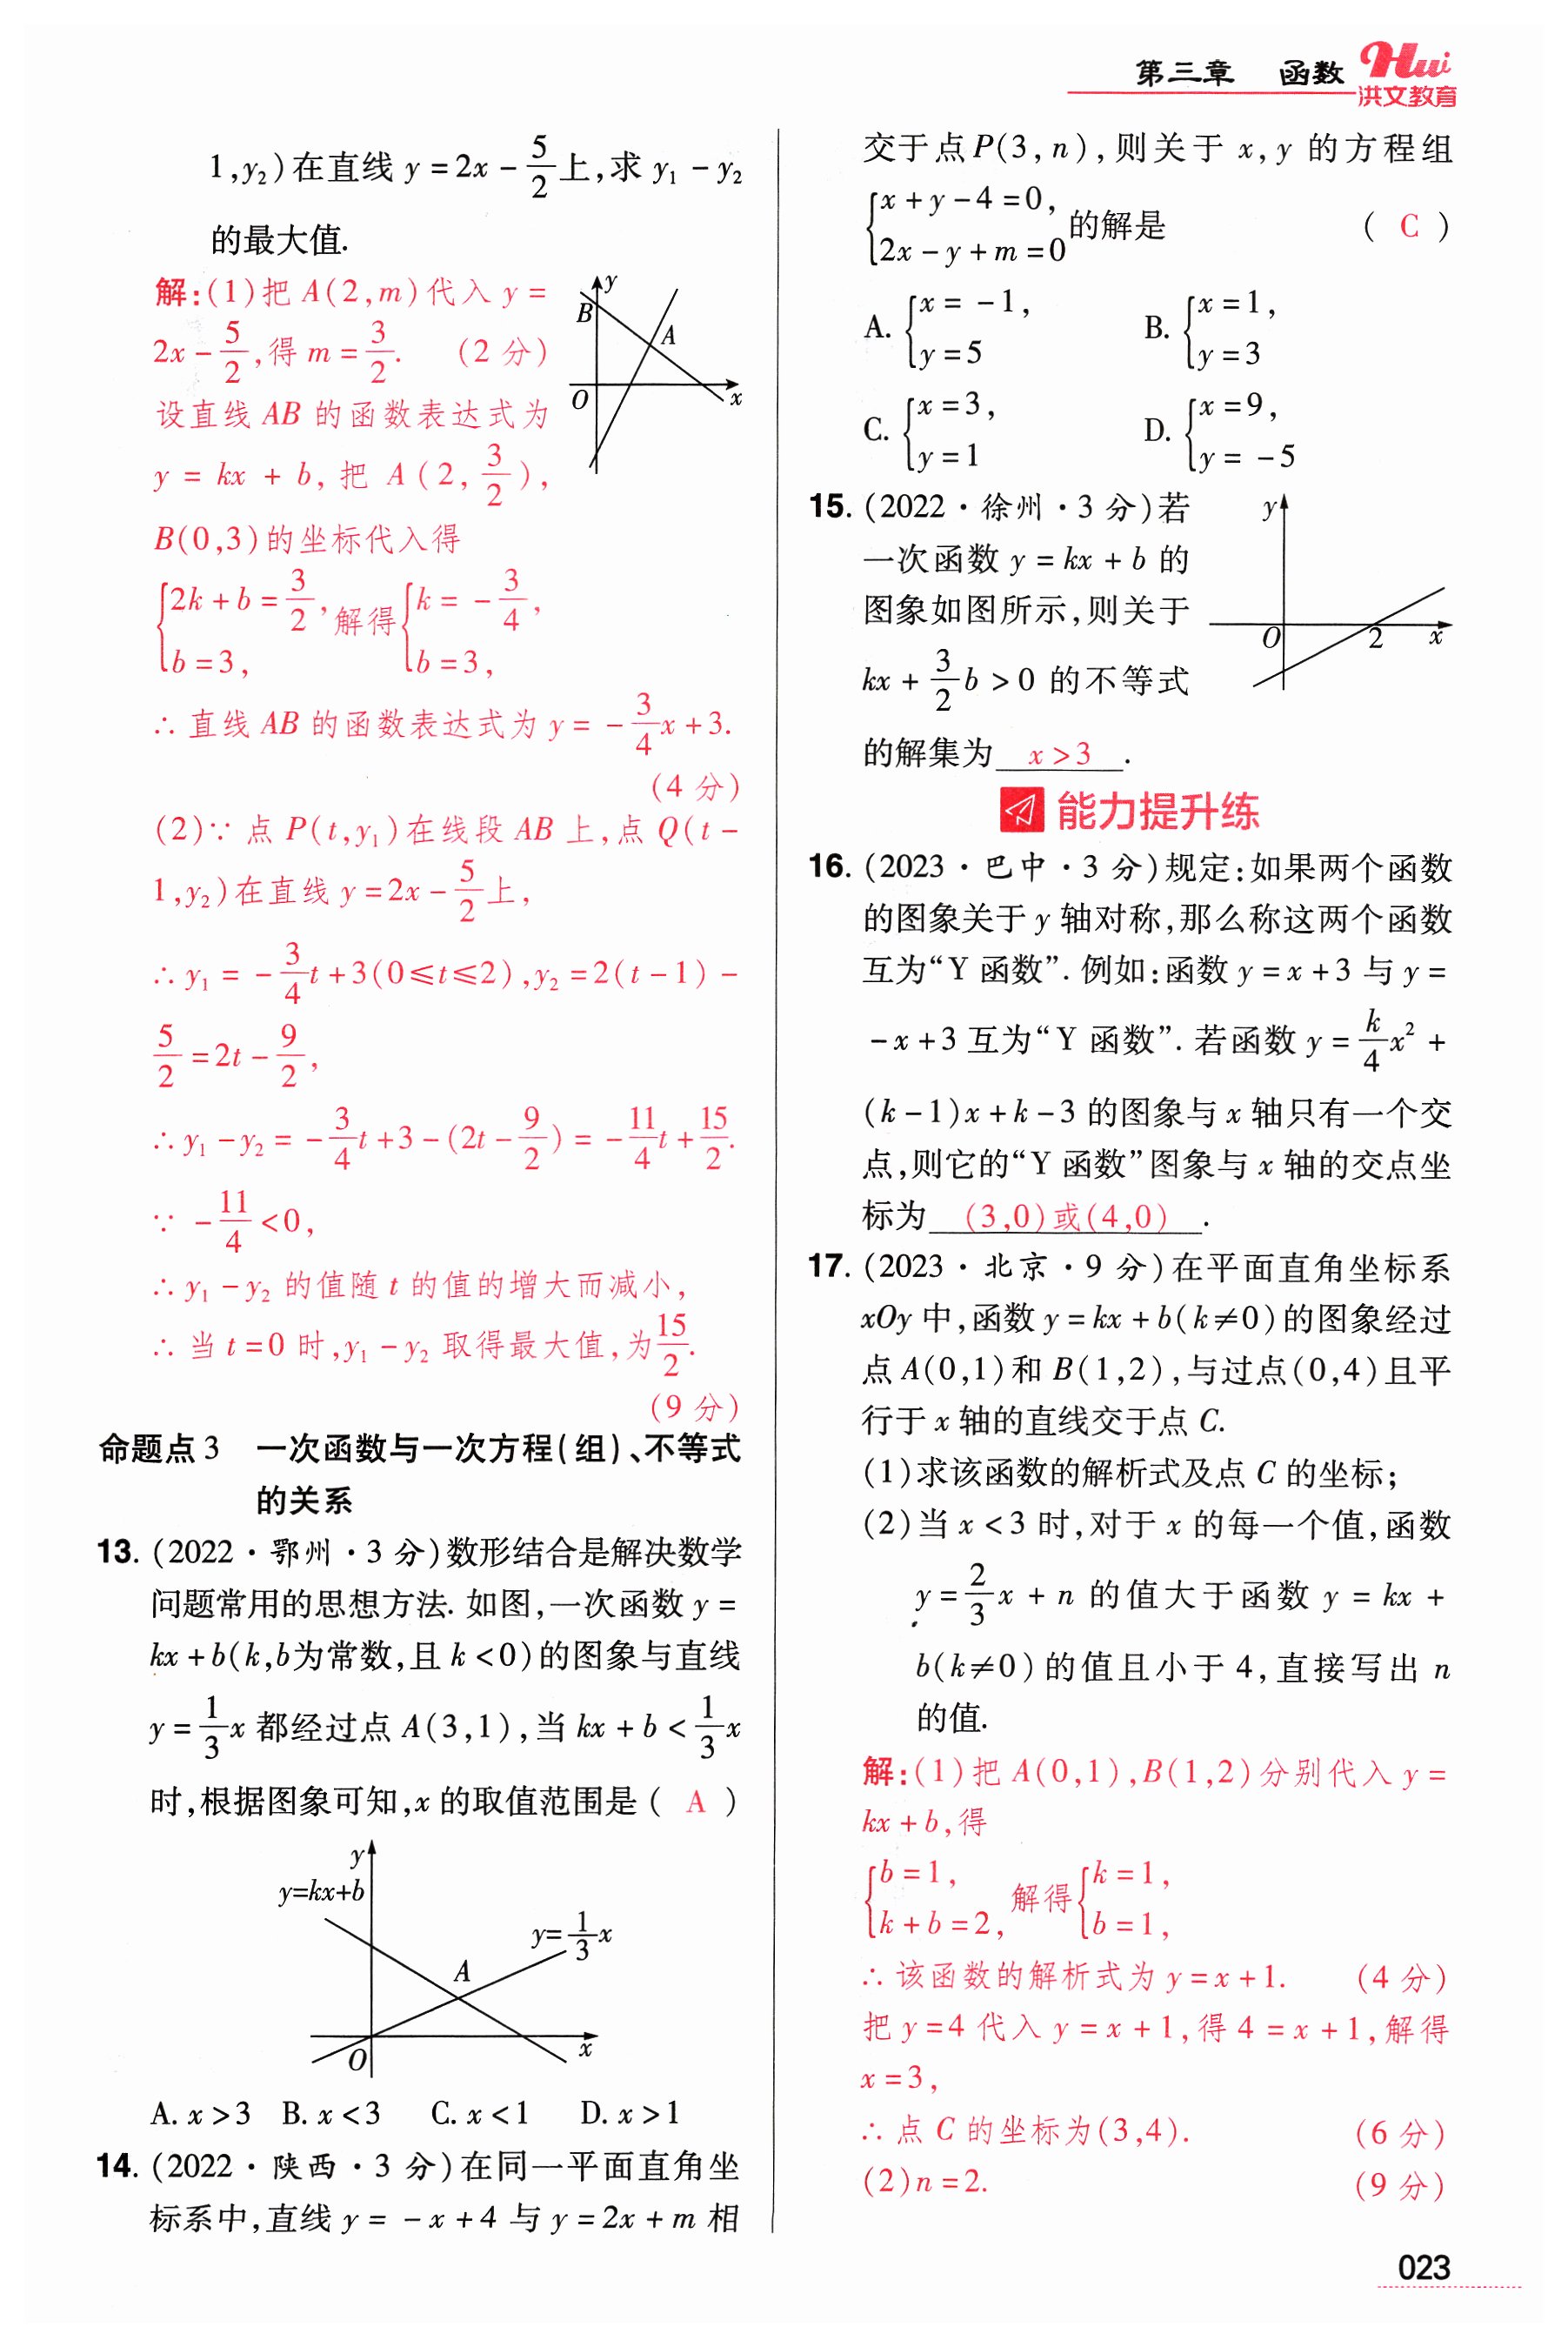 第三章 函数 Hui
洪文教育
1,y₂)在直线 y=2x-5/2上,求 y₁-y₂
的最大值.
解:(1)把 A(2,m)代入 y=
2x-5/2,得 m=3/2. (2分)
设直线 AB 的函数表达式为
y=kx+b,把 A(2,3/2),
B(0,3)的坐标代入得
{2k+b=3/2, b=3, 解得{k=-3/4, b=3,
∴直线 AB 的函数表达式为 y=-3/4x+3.
(4分)
(2)∵点 P(t,y₁)在线段 AB 上,点 Q(t-
1,y₂)在直线 y=2x-5/2上,
∴y₁=-3/4t+3(0≤t≤2),y₂=2(t-1)-
5/2=2t-9/2,
∴y₁-y₂=-3/4t+3-(2t-9/2)=-11/4t+15/2.
∵-11/4<0,
∴y₁-y₂ 的值随 t 的值的增大而减小,
∴当 t=0 时,y₁-y₂ 取得最大值,为15/2.
(9分)
y
B
A
O
x
命题点3 一次函数与一次方程(组)、不等式
的关系
13.(2022·鄂州·3分)数形结合是解决数学
问题常用的思想方法.如图,一次函数 y=
kx+b(k,b为常数,且 k<0)的图象与直线
y=1/3x 都经过点 A(3,1),当 kx+b<1/3x
时,根据图象可知,x 的取值范围是( A )
y
y=kx+b
y=1/3x
A
O
x
A. x>3 B. x<3 C. x<1 D. x>1
14.(2022·陕西·3分)在同一平面直角坐
标系中,直线 y=-x+4 与 y=2x+m 相
交于点P(3,n),则关于 x,y 的方程组
{x+y-4=0, 2x-y+m=0 的解是 ( C )
A. {x=-1, y=5 B. {x=1, y=3
C. {x=3, y=1 D. {x=9, y=-5
15.(2022·徐州·3分)若
一次函数 y=kx+b 的
图象如图所示,则关于
kx+3/2b>0 的不等式
的解集为 x>3 .
y
O
2
x
能力提升练
16.(2023·巴中·3分)规定:如果两个函数
的图象关于 y 轴对称,那么称这两个函数
互为“Y 函数”.例如:函数 y=x+3 与 y=
-x+3 互为“Y 函数”.若函数 y=k/4x²+
(k-1)x+k-3 的图象与 x 轴只有一个交
点,则它的“Y 函数”图象与 x 轴的交点坐
标为 (3,0)或(4,0) .
17.(2023·北京·9分)在平面直角坐标系
xOy 中,函数 y=kx+b(k≠0)的图象经过
点 A(0,1)和 B(1,2),与过点(0,4)且平
行于 x 轴的直线交于点 C.
(1)求该函数的解析式及点 C 的坐标;
(2)当 x<3 时,对于 x 的每一个值,函数
y=2/3x+n 的值大于函数 y=kx+
b(k≠0)的值且小于4,直接写出 n
的值.
解:(1)把 A(0,1),B(1,2)分别代入 y=
kx+b,得
{b=1, k+b=2, 解得{k=1, b=1,
∴该函数的解析式为 y=x+1. (4分)
把 y=4 代入 y=x+1,得 4=x+1,解得
x=3,
∴点 C 的坐标为(3,4). (6分)
(2)n=2. (9分)
023